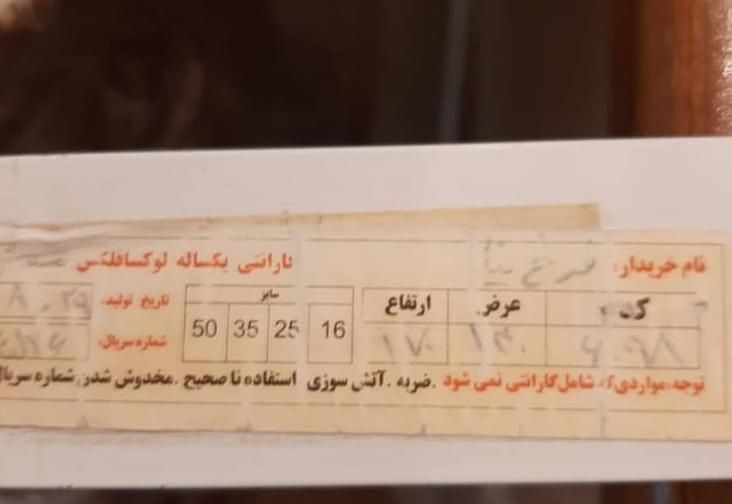 نام خریدار: فرخ نیا گارانتی یکساله لوکسافلکس
کد عرض ارتفاع سایز تاریخ تولید:
۱۷۰ 16 25 35 50 شماره سریال:
توجه:مواردی که شامل گارانتی نمی شود .ضربه .آتش سوزی استفاده نا صحیح .مخدوش شدن شماره سریال